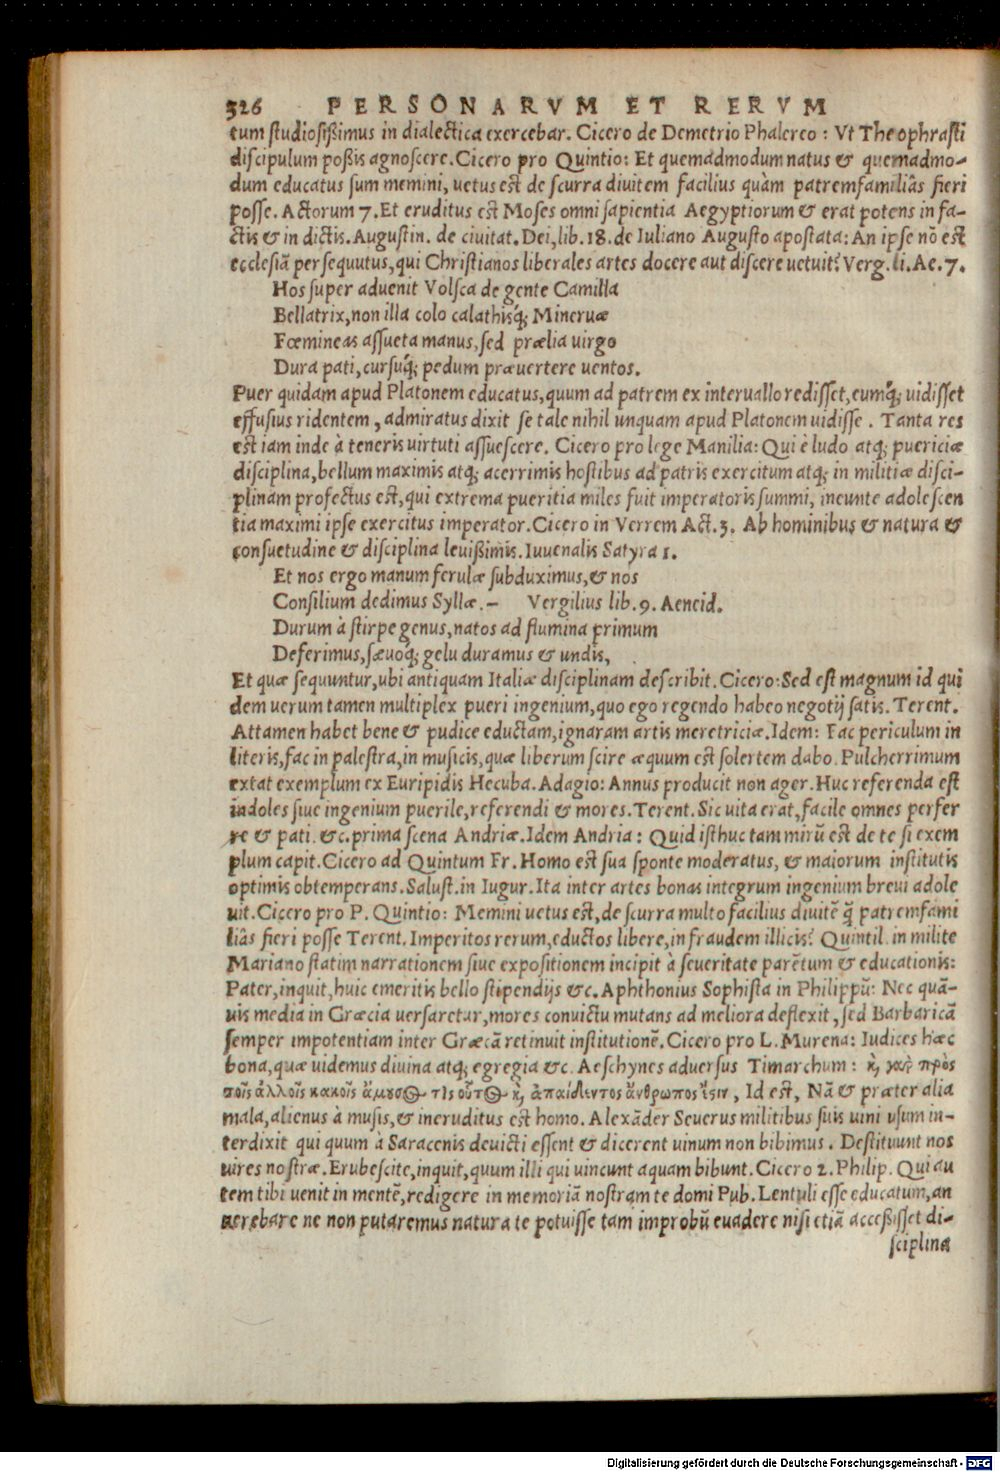 326 PERSONARVM ET RERVM
tum studiosißimus in dialectica exercebar. Cicero de Demetrio Phalereo: Vt Theophrasti
discipulum poßis agnoscere. Cicero pro Quintio: Et quemadmodum natus & quemadmo-
dum educatus sum memini, uetus est de scurra diuitem facilius quàm patremfamiliâs fieri
posse. Actorum 7. Et eruditus est Moses omni sapientia Aegyptiorum & erat potens in fa-
ctis & in dictis. Augustin. de ciuitat. Dei, lib. 18. de Iuliano Augusto apostata: An ipse nō est
ecclesiā persequutus, qui Christianos liberales artes docere aut discere uetuit? Verg. li. Ae. 7.
Hos super aduenit Volsca de gente Camilla
Bellatrix, non illa colo calathisq́; Mineruæ
Fœmineas assueta manus, sed prælia uirgo
Dura pati, cursuq́; pedum præuertere uentos.
Puer quidam apud Platonem educatus, quum ad patrem ex interuallo redisset, eumq́; uidisset
effusius ridentem, admiratus dixit se tale nihil unquam apud Platonem uidisse. Tanta res
est iam inde à teneris uirtuti assuescere. Cicero pro lege Manilia: Qui è ludo atq; puericiæ
disciplina, bellum maximis atq; acerrimis hostibus ad patris exercitum atq; in militiæ disci-
plinam profectus est, qui extrema pueritia miles fuit imperatoris summi, ineunte adolescen
tia maximi ipse exercitus imperator. Cicero in Verrem Act. 3. Ab hominibus & natura &
consuetudine & disciplina leuißimis. Iuuenalis Satyra 1.
Et nos ergo manum ferulæ subduximus, & nos
Consilium dedimus Syllæ. – Vergilius lib. 9. Aeneid.
Durum à stirpe genus, natos ad flumina primum
Deferimus, sæuoq́; gelu duramus & undis,
Et quæ sequuntur, ubi antiquam Italiæ disciplinam describit. Cicero: Sed est magnum id qui
dem uerum tamen multiplex pueri ingenium, quo ego regendo habeo negotij satis. Terent.
Attamen habet bene & pudice eductam, ignaram artis meretriciæ. Idem: Fac periculum in
literis, fac in palestra, in musicis, quæ liberum scire æquum est solertem dabo. Pulcherrimum
extat exemplum ex Euripidis Hecuba. Adagio: Annus producit non ager. Huc referenda est
indoles siue ingenium puerile, referendi & mores. Terent. Sic uita erat, facile omnes perfer
re & pati. &c. prima scena Andriæ. Idem Andria: Quid isthuc tam mirū est de te si exem
plum capit. Cicero ad Quintum Fr. Homo est sua sponte moderatus, & maiorum institutis
optimis obtemperans. Salust. in Iugur. Ita inter artes bonas integrum ingenium breui adole
uit. Cicero pro P. Quintio: Memini uetus est, de scurra multo facilius diuitē q̃ patremfami
liâs fieri posse Terent. Imperitos rerum, eductos libere, in fraudem illicis? Quintil. in milite
Mariano statim narrationem siue expositionem incipit à seueritate parētum & educationis:
Pater, inquit, huic emeritis bello stipendijs &c. Aphthonius Sophista in Philippū: Nec quā-
uis media in Græcia uersaretur, mores conuictu mutans ad meliora deflexit, sed Barbaricā
semper impotentiam inter Græcā retinuit institutionē. Cicero pro L. Murena: Iudices hæc
bona, quæ uidemus diuina atq; egregia &c. Aeschynes aduersus Timarchum: κ̀ γαρ̀ πρὸς
τοῖς ἀλλοῖς κακοῖς ἄμουσος τὶς οὗτος κ̀ ἀπαίδευτος ἄνθρωπος ἔςιν, Id est, Nā & præter alia
mala, alienus à musis, & ineruditus est homo. Alexāder Seuerus militibus suis uini usum in-
terdixit qui quum à Saracenis deuicti essent & dicerent uinum non bibimus. Destituunt nos
uires nostræ. Erubescite, inquit, quum illi qui uincunt aquam bibunt. Cicero 2. Philip. Qui au
tem tibi uenit in mentē, redigere in memoriā nostram te domi Pub. Lentuli esse educatum, an
uerebare ne non putaremus natura te potuisse tam improbū euadere nisi etiā acceßisset di-
sciplina
Digitalisierung gefördert durch die Deutsche Forschungsgemeinschaft - DFG